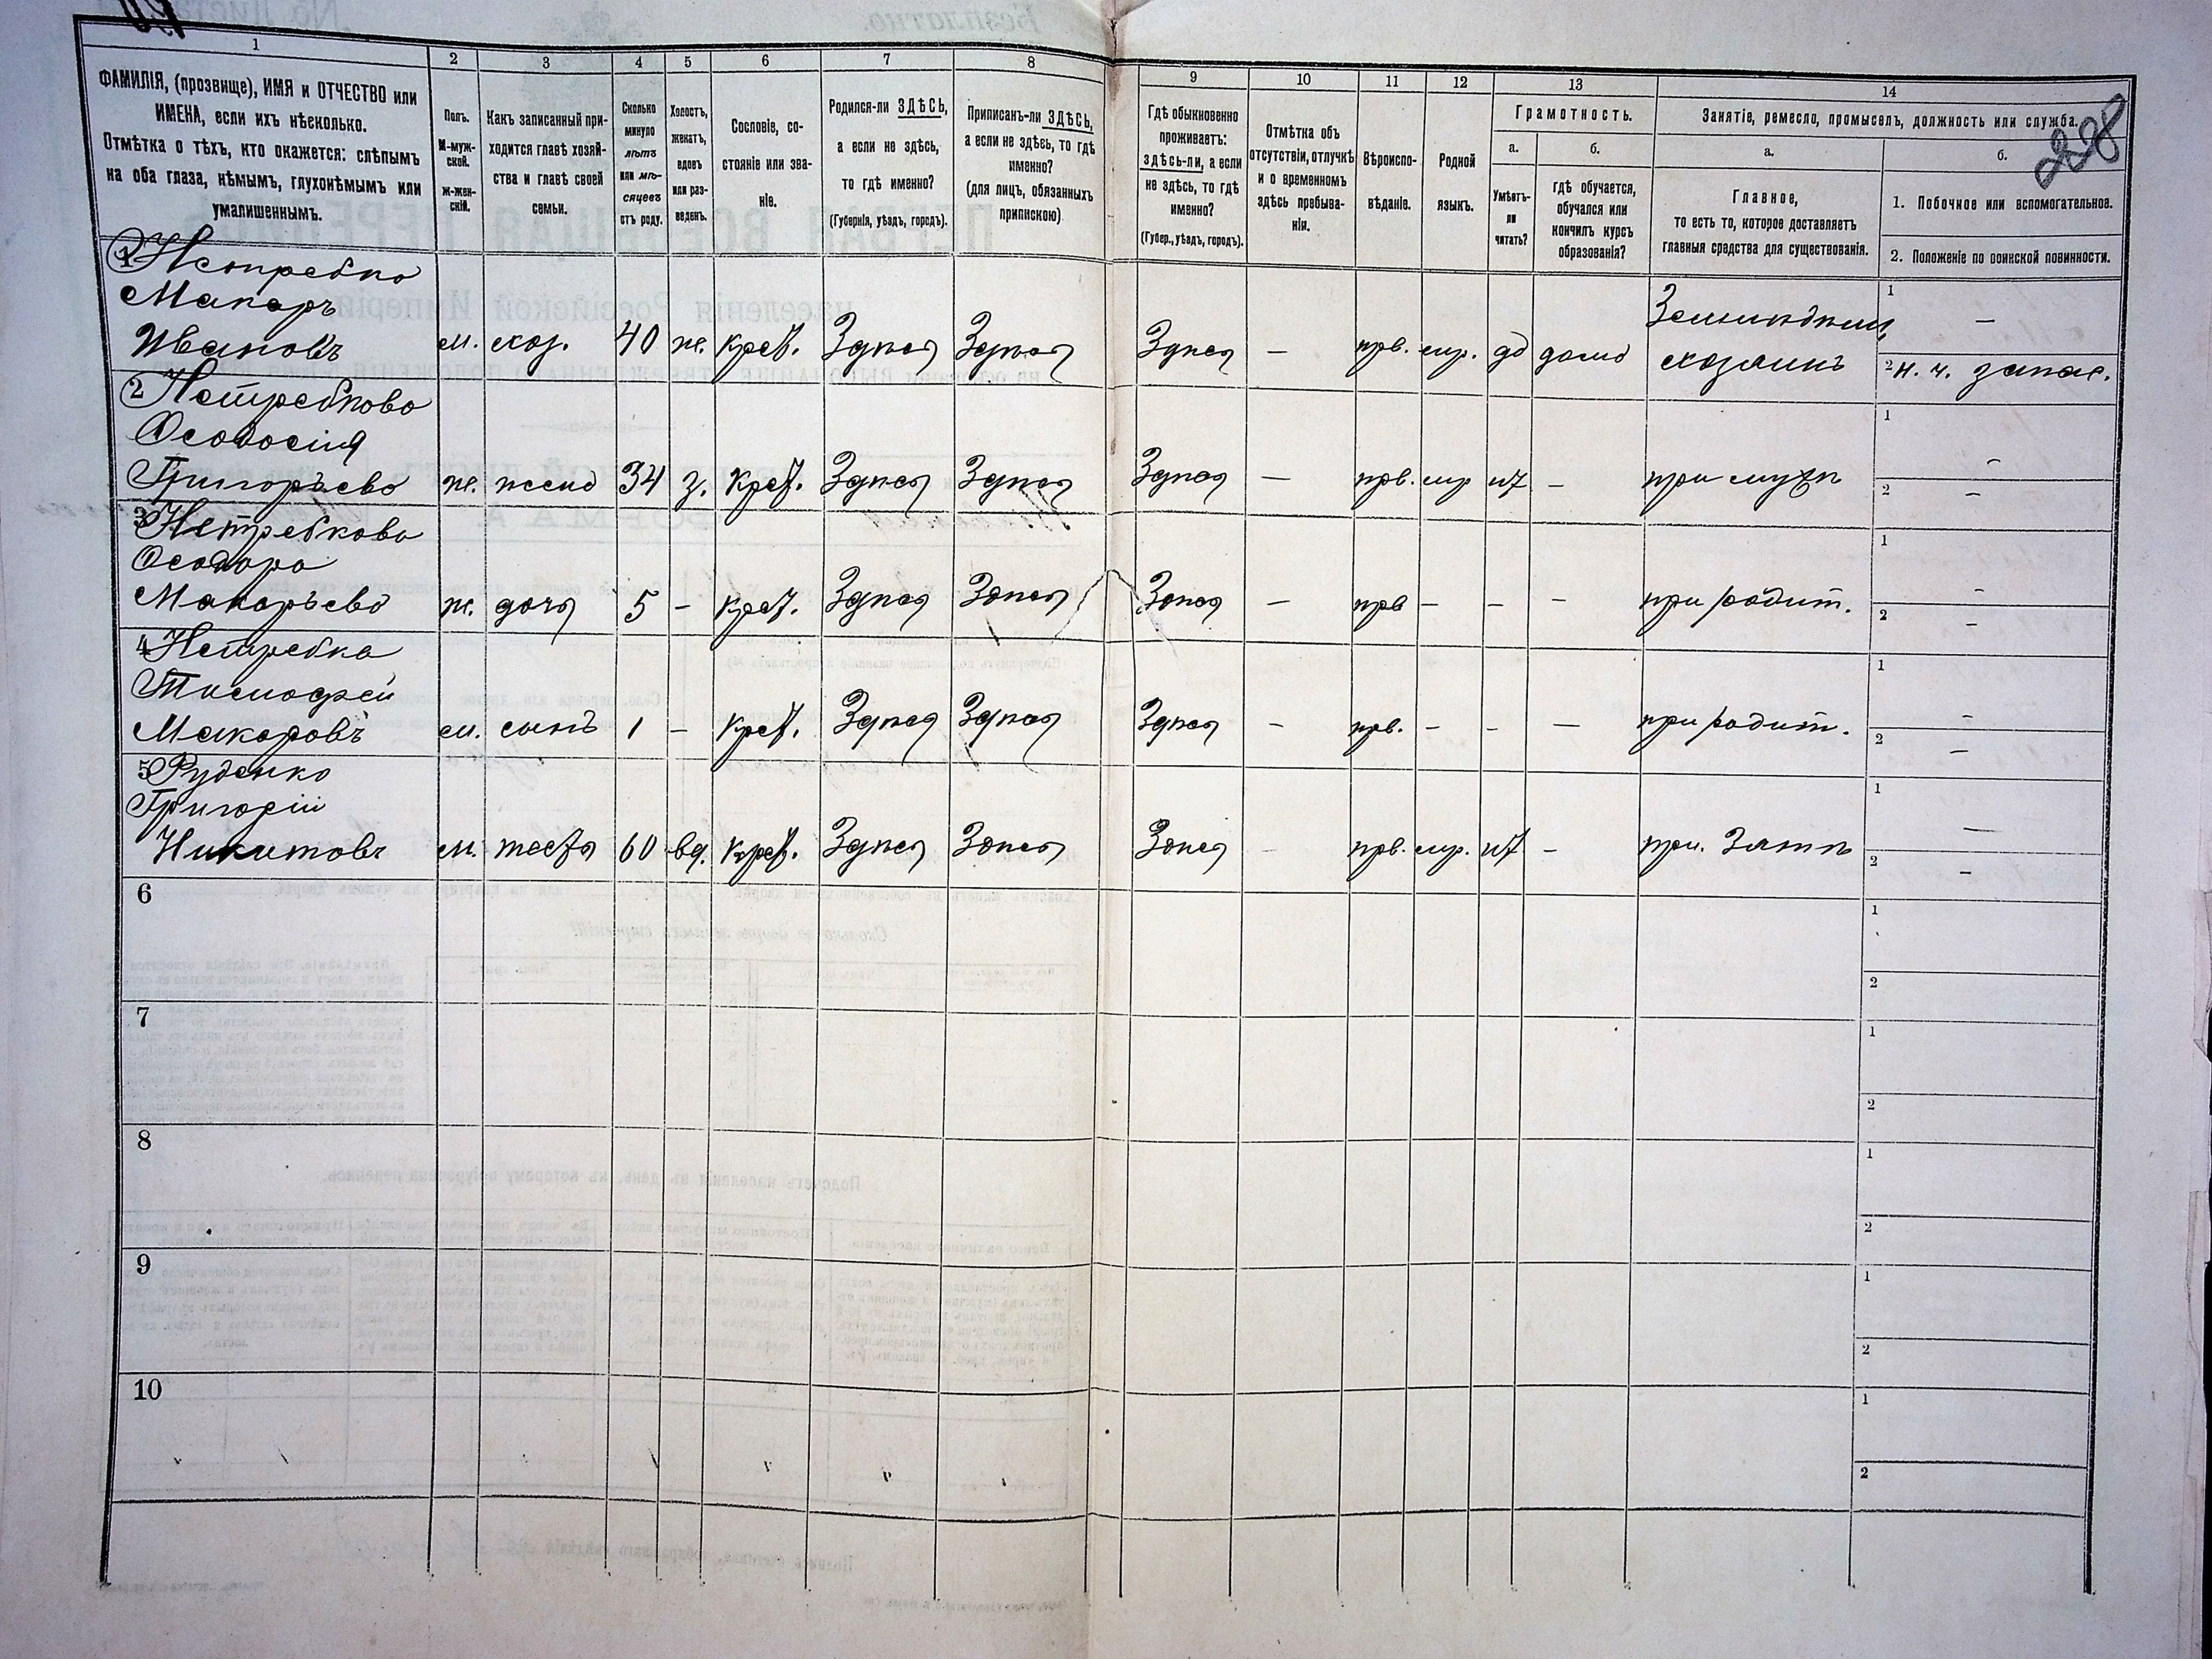 1
2
3
4
5
6
7
8
9
10
11
12
13
14
ФАМИЛІЯ, (прозвище), ИМЯ и ОТЧЕСТВО или
ИМЕНА, если ихъ нѣсколько.
Отмѣтка о тѣхъ, кто окажется: слѣпымъ
на оба глаза, нѣмымъ, глухонѣмымъ или
умалишеннымъ.
Полъ.
М-муж-
ской.
Ж-жен-
скій.
Какъ записанный при-
ходится главѣ хозяй-
ства и главѣ своей
семьи.
Сколько
минуло
лѣтъ
или мѣ-
сяцевъ
отъ роду.
Холостъ,
женатъ,
вдовъ
или раз-
веденъ.
Сословіе, со-
стояніе или зва-
ніе.
Родился-ли ЗДѢСЬ,
а если не здѣсь,
то гдѣ именно?
(Губернія, уѣздъ, городъ).
Приписанъ-ли ЗДѢСЬ,
а если не здѣсь, то гдѣ
именно?
(для лицъ, обязанныхъ
припискою)
Гдѣ обыкновенно
проживаетъ:
здѣсь-ли, а если
не здѣсь, то гдѣ
именно?
(Губер., уѣздъ, городъ).
Отмѣтка объ
отсутствіи, отлучкѣ
и о временномъ
здѣсь пребыва-
ніи.
Вѣроиспо-
вѣданіе.
Родной
языкъ.
Грамотность.
а.
Умѣетъ-
ли
читать?
б.
гдѣ обучается,
обучался или
кончилъ курсъ
образованія?
Занятіе, ремесло, промыселъ, должность или служба.
а.
Главное,
то есть то, которое доставляетъ
главныя средства для существованія.
б.
1. Побочное или вспомогательное.
2. Положеніе по воинской повинности.
228
1 Нетребко
Макаръ
Ивановъ м. хоз. 40 ж. крст. Здѣсь Здѣсь Здѣсь — прв. мр. да дома
хозяинъ
1 —
2 н. ч. запас.
2 Нетребкова
Ѳеодосія
Григорьева ж. жена 34 з. крст. Здѣсь Здѣсь Здѣсь — прв. мр нт — при мужѣ
1 -
2 -
3 Нетребкова
Ѳеодора
Макарьева ж. дочь 5 - крст. Здѣсь Здѣсь Здѣсь — прв - - - при родит.
1 -
2 -
4 Нетребка
Тимофей
Макаровъ м. сынъ 1 - крст. Здѣсь Здѣсь Здѣсь - прв. - - — при родит.
1 -
2 -
5 Руденко
Григорій
Никитовъ м. тесть 60 вд. крст. Здѣсь Здѣсь Здѣсь - прв. мр. нт — при. Зятѣ
1 —
2 -
6
1
2
7
1
2
8
1
2
9
1
2
10
1
2